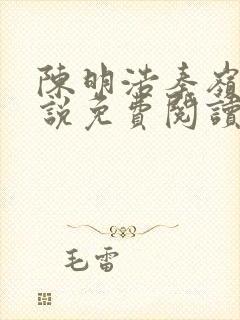 陳明浩秦嶺
說免費閱讀
毛雷